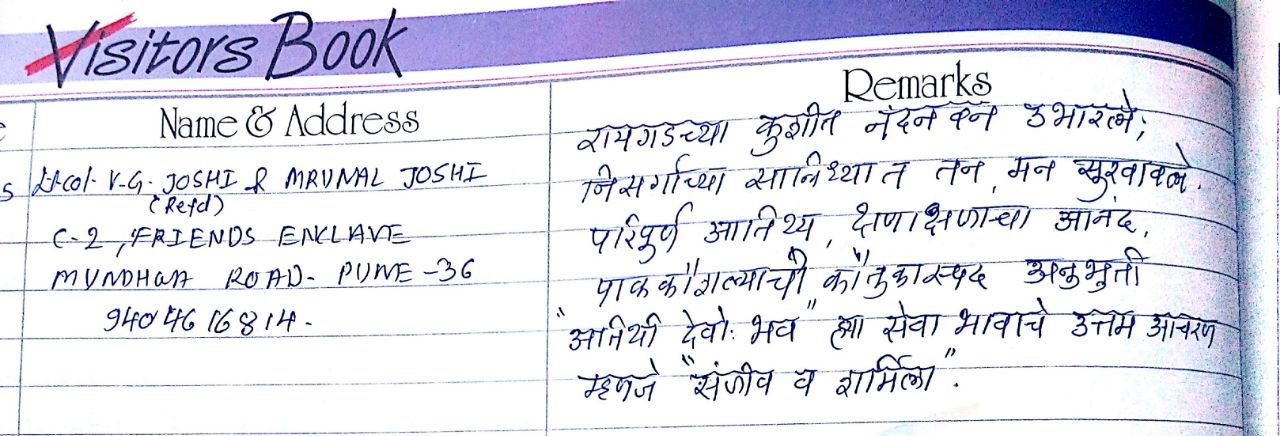 Visitors Book
Name & Address
Remarks
Lt col. V.G. JOSHI & MRUNAL JOSHI
(Retd)
C-2, FRIENDS ENCLAVE
MUNDHWA ROAD- PUNE -36
9404616814.
रायगडच्या कुशीत नंदनवन उभारले;
निसर्गाच्या सानिध्यात तन, मन सुखावले.
परिपुर्ण आतिथ्य, क्षणाक्षणाचा आनंद,
पाककौशल्याची कौतुकास्पद अनुभुती
"अतिथी देवोः भव" ह्या सेवा भावाचे उत्तम आचरण
म्हणजे "संजीव व शर्मिला".